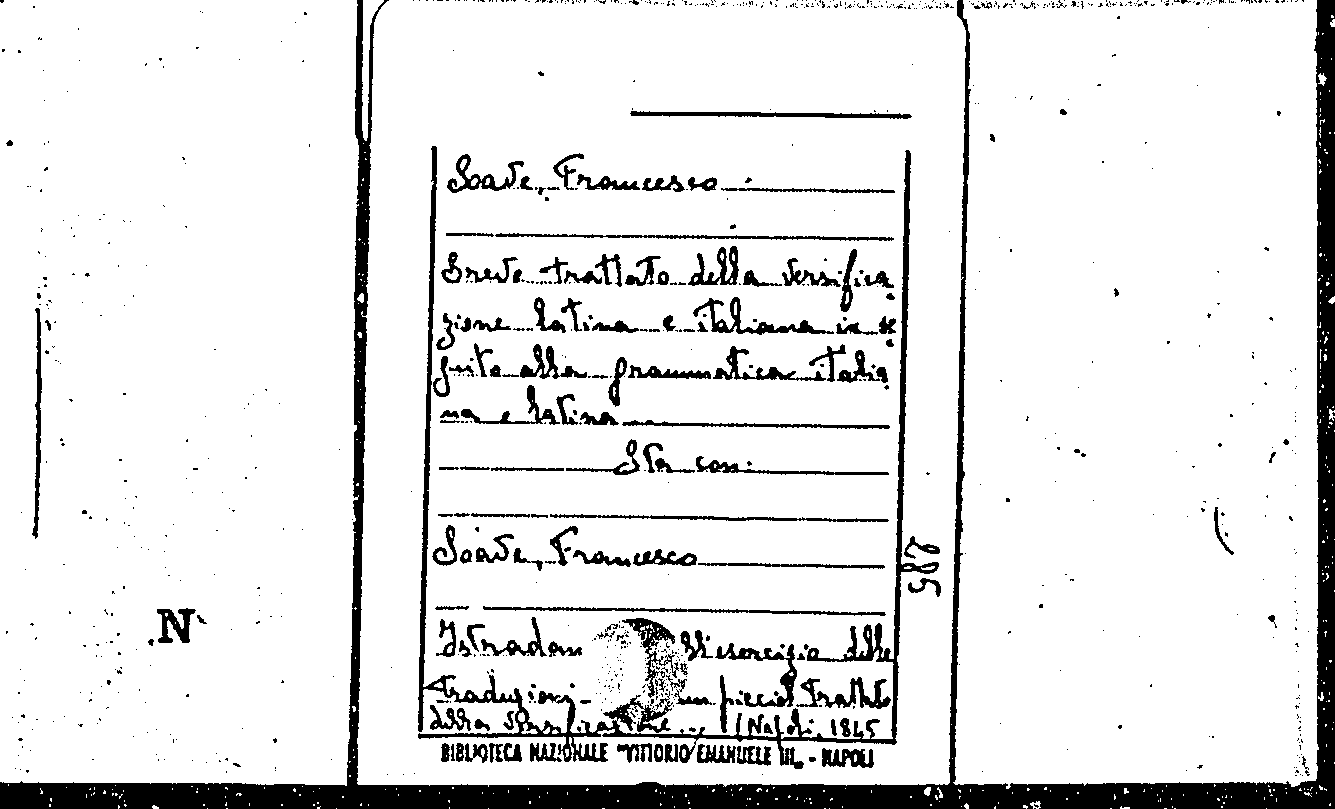 Soave, Francesco
Breve trattato della versifica
zione latina e italiana in se
guito alla grammatica italia
na e latina
Sta con:
Soave, Francesco
285
N
all'esercizio delle
traduzioni un picciol trattato
della versificazione... (Napoli, 1845
BIBLIOTECA NAZIONALE "VITTORIO EMANUELE III" - NAPOLI